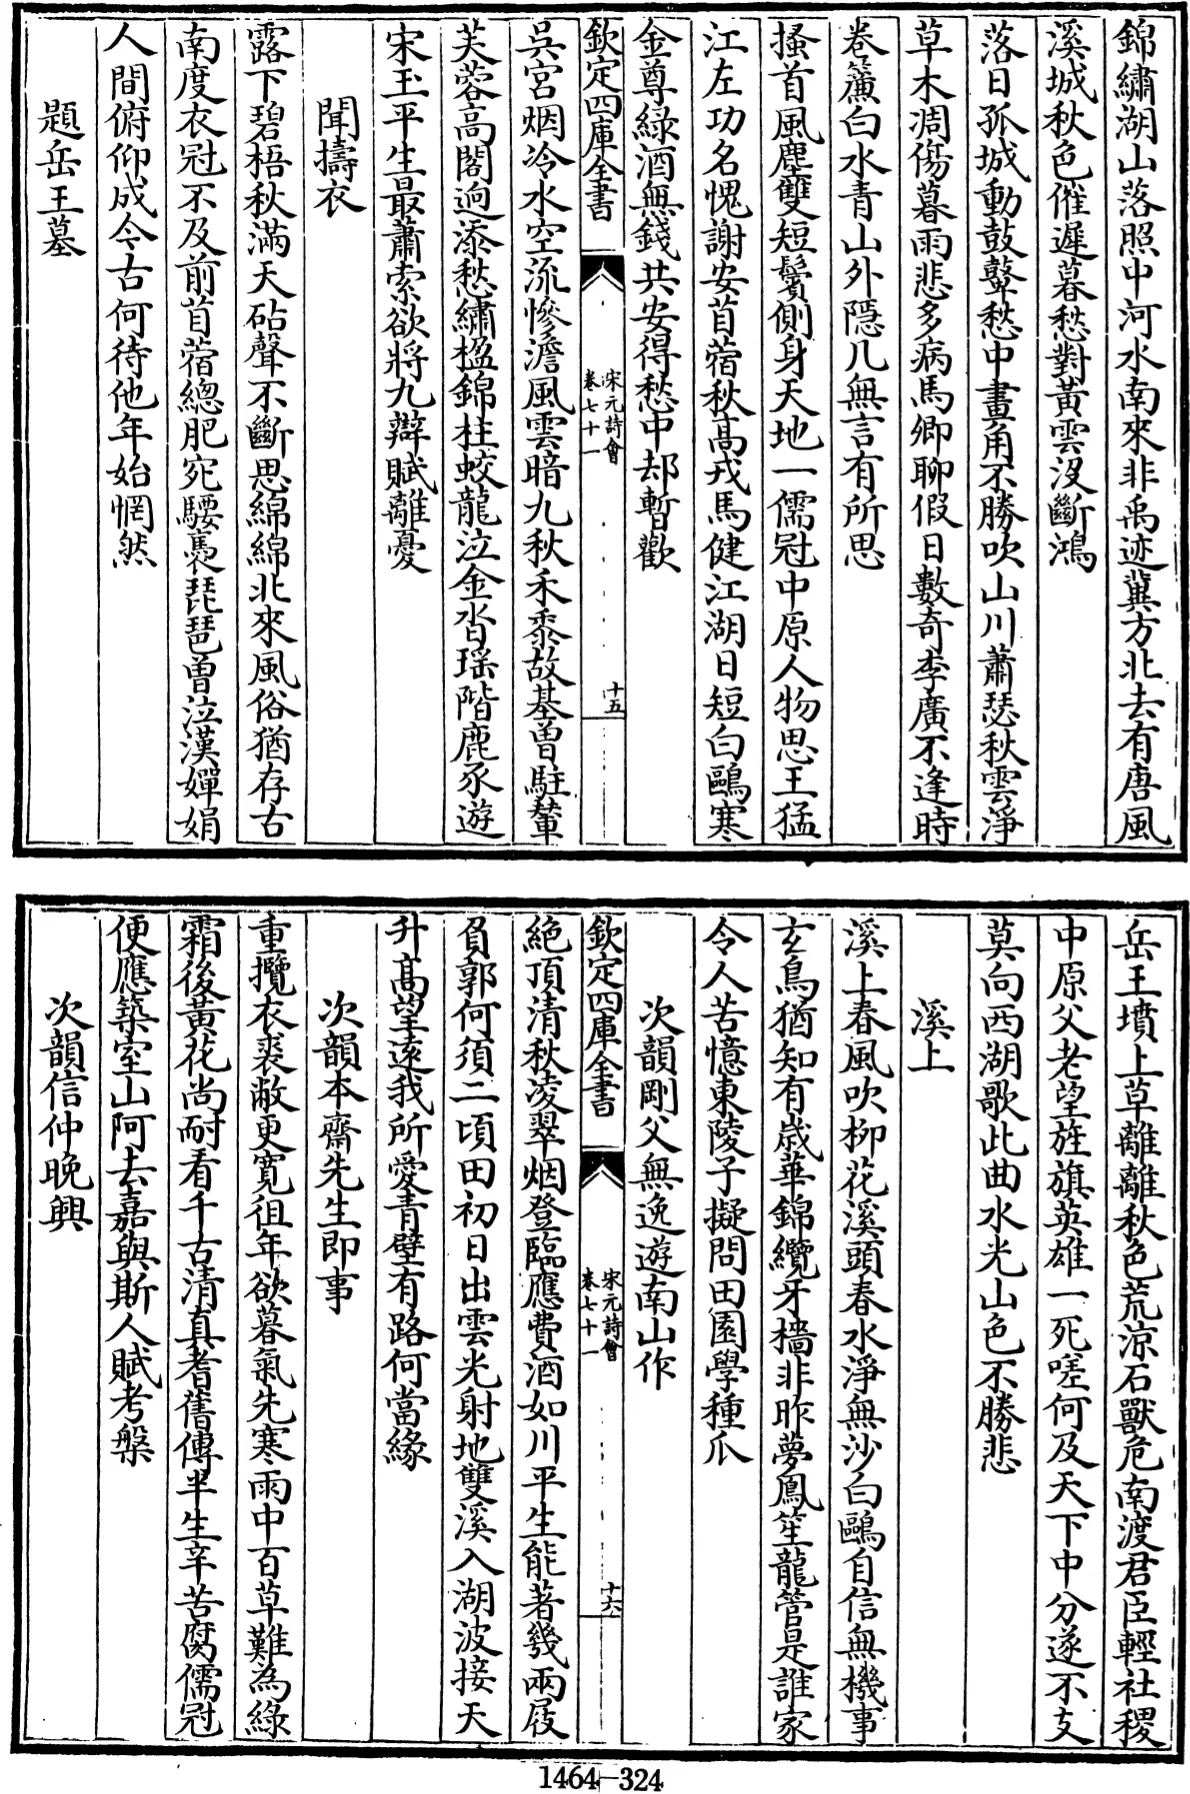 錦繡湖山落照中河水南來非禹迹冀方北去有唐風
溪城秋色催遲暮愁對黃雲沒斷鴻
落日孤城動鼓鼙愁中畫角不勝吹山川蕭瑟秋雲淨
草木凋傷暮雨悲多病馬卿聊假日數奇李廣不逢時
卷簾白水青山外隱几無言有所思
搔首風塵雙短鬢側身天地一儒冠中原人物思王猛
江左功名愧謝安苜蓿秋高戎馬健江湖日短白鷗寒
金尊綠酒無錢共安得愁中却暫歡
欽定四庫全書
宋元詩會
卷七十一
十五
吳宮烟冷水空流慘澹風雲暗九秋禾黍故基曾駐輦
芙蓉高閣迥添愁繡楹錦柱蛟龍泣金沓瑶階鹿豕遊
宋玉平生最蕭索欲將九辯賦離憂
聞擣衣
露下碧梧秋滿天砧聲不斷思綿綿北來風俗猶存古
南度衣冠不及前苜蓿總肥宛騕褭琵琶曽泣漢嬋娟
人間俯仰成今古何待他年始惘然
題岳王墓
岳王墳上草離離秋色荒涼石獸危南渡君臣輕社稷
中原父老望旌旗英雄一死嗟何及天下中分遂不支
莫向西湖歌此曲水光山色不勝悲
溪上
溪上春風吹柳花溪頭春水淨無沙白鷗自信無機事
玄鳥猶知有歲華錦纜牙檣非昨夢鳳笙龍管是誰家
令人苦憶東陵子擬問田園學種瓜
次韻剛父無逸遊南山作
欽定四庫全書
宋元詩會
卷七十一
十六
絶頂清秋凌翠烟登臨應費酒如川平生能著幾兩屐
負郭何須二頃田初日出雲光射地雙溪入湖波接天
升髙望遠我所愛青壁有路何當緣
次韻本齋先生即事
重攬衣裘敝更寬徂年欲暮氣先寒雨中百草難為綠
霜後黃花尚耐看千古清真耆舊傳半生辛苦腐儒冠
便應築室山阿去嘉與斯人賦考槃
次韻信仲晚興
1464-324